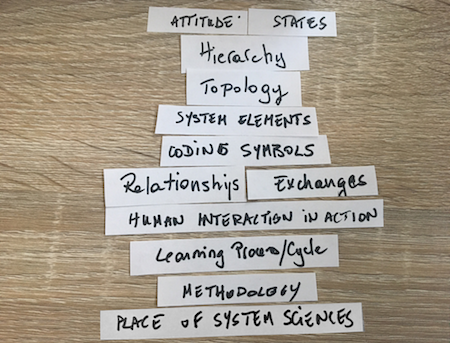 ATTITUDE STATES
Hierarchy
Topology
SYSTEM ELEMENTS
CODING SYMBOLS
Relationships Exchanges
HUMAN INTERACTION IN ACTION
Learning Process/Cycle
METHODOLOGY
PLACE OF SYSTEM SCIENCES